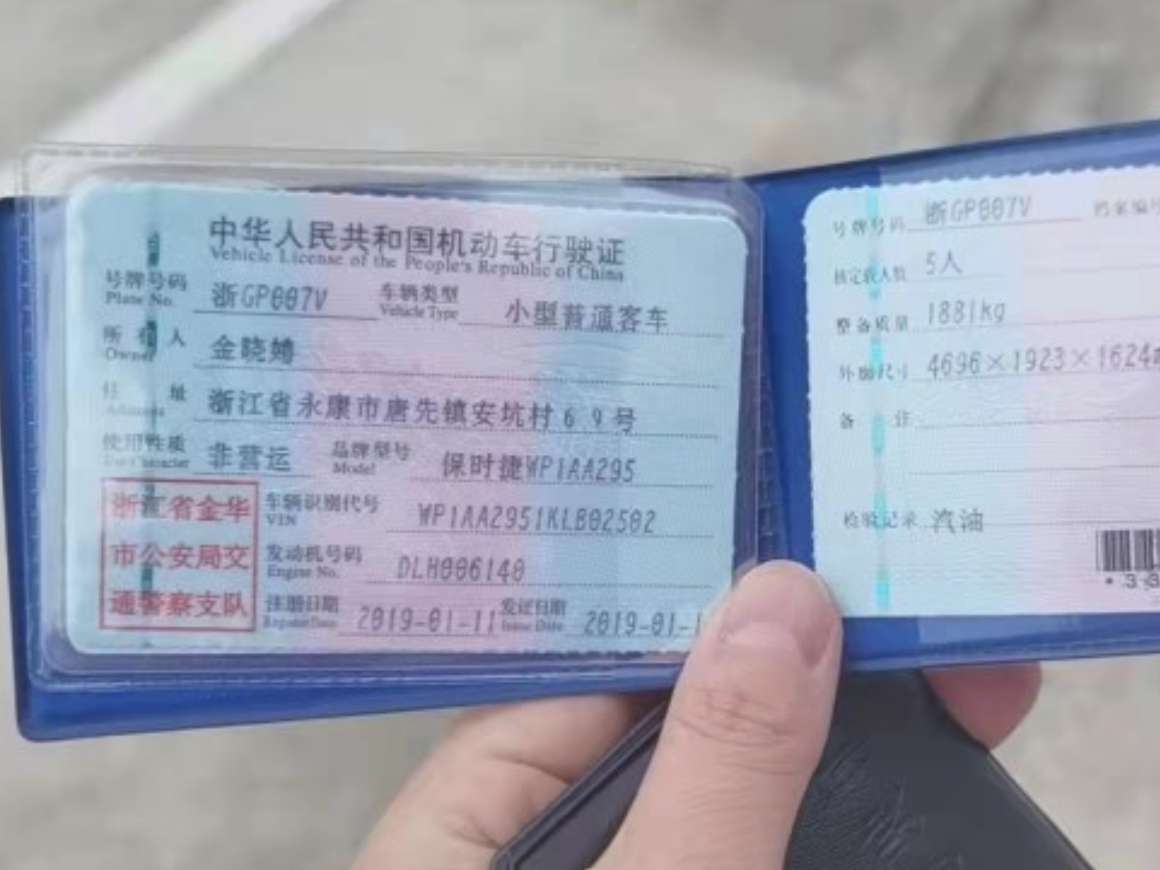 中华人民共和国机动车行驶证
Vehicle License of the People's Republic of China
号牌号码 浙GP007V 车辆类型 小型普通客车
Plate No. Vehicle Type
所有人 金晓娉
Owner
住址 浙江省永康市唐先镇安坑村69号
Address
使用性质 非营运 品牌型号 保时捷WP1AA295
Use Character Model
浙江省金华
市公安局交
通警察支队
车辆识别代号 WP1AA2951KLB02502
VIN
发动机号码 DLH006140
Engine No.
注册日期 2019-01-11 发证日期 2019-01-1
Register Date Issue Date
号牌号码 浙GP007V 档案编号
核定载人数 5人
整备质量 1881kg
外廓尺寸 4696×1923×1624
备注
检验记录 汽油